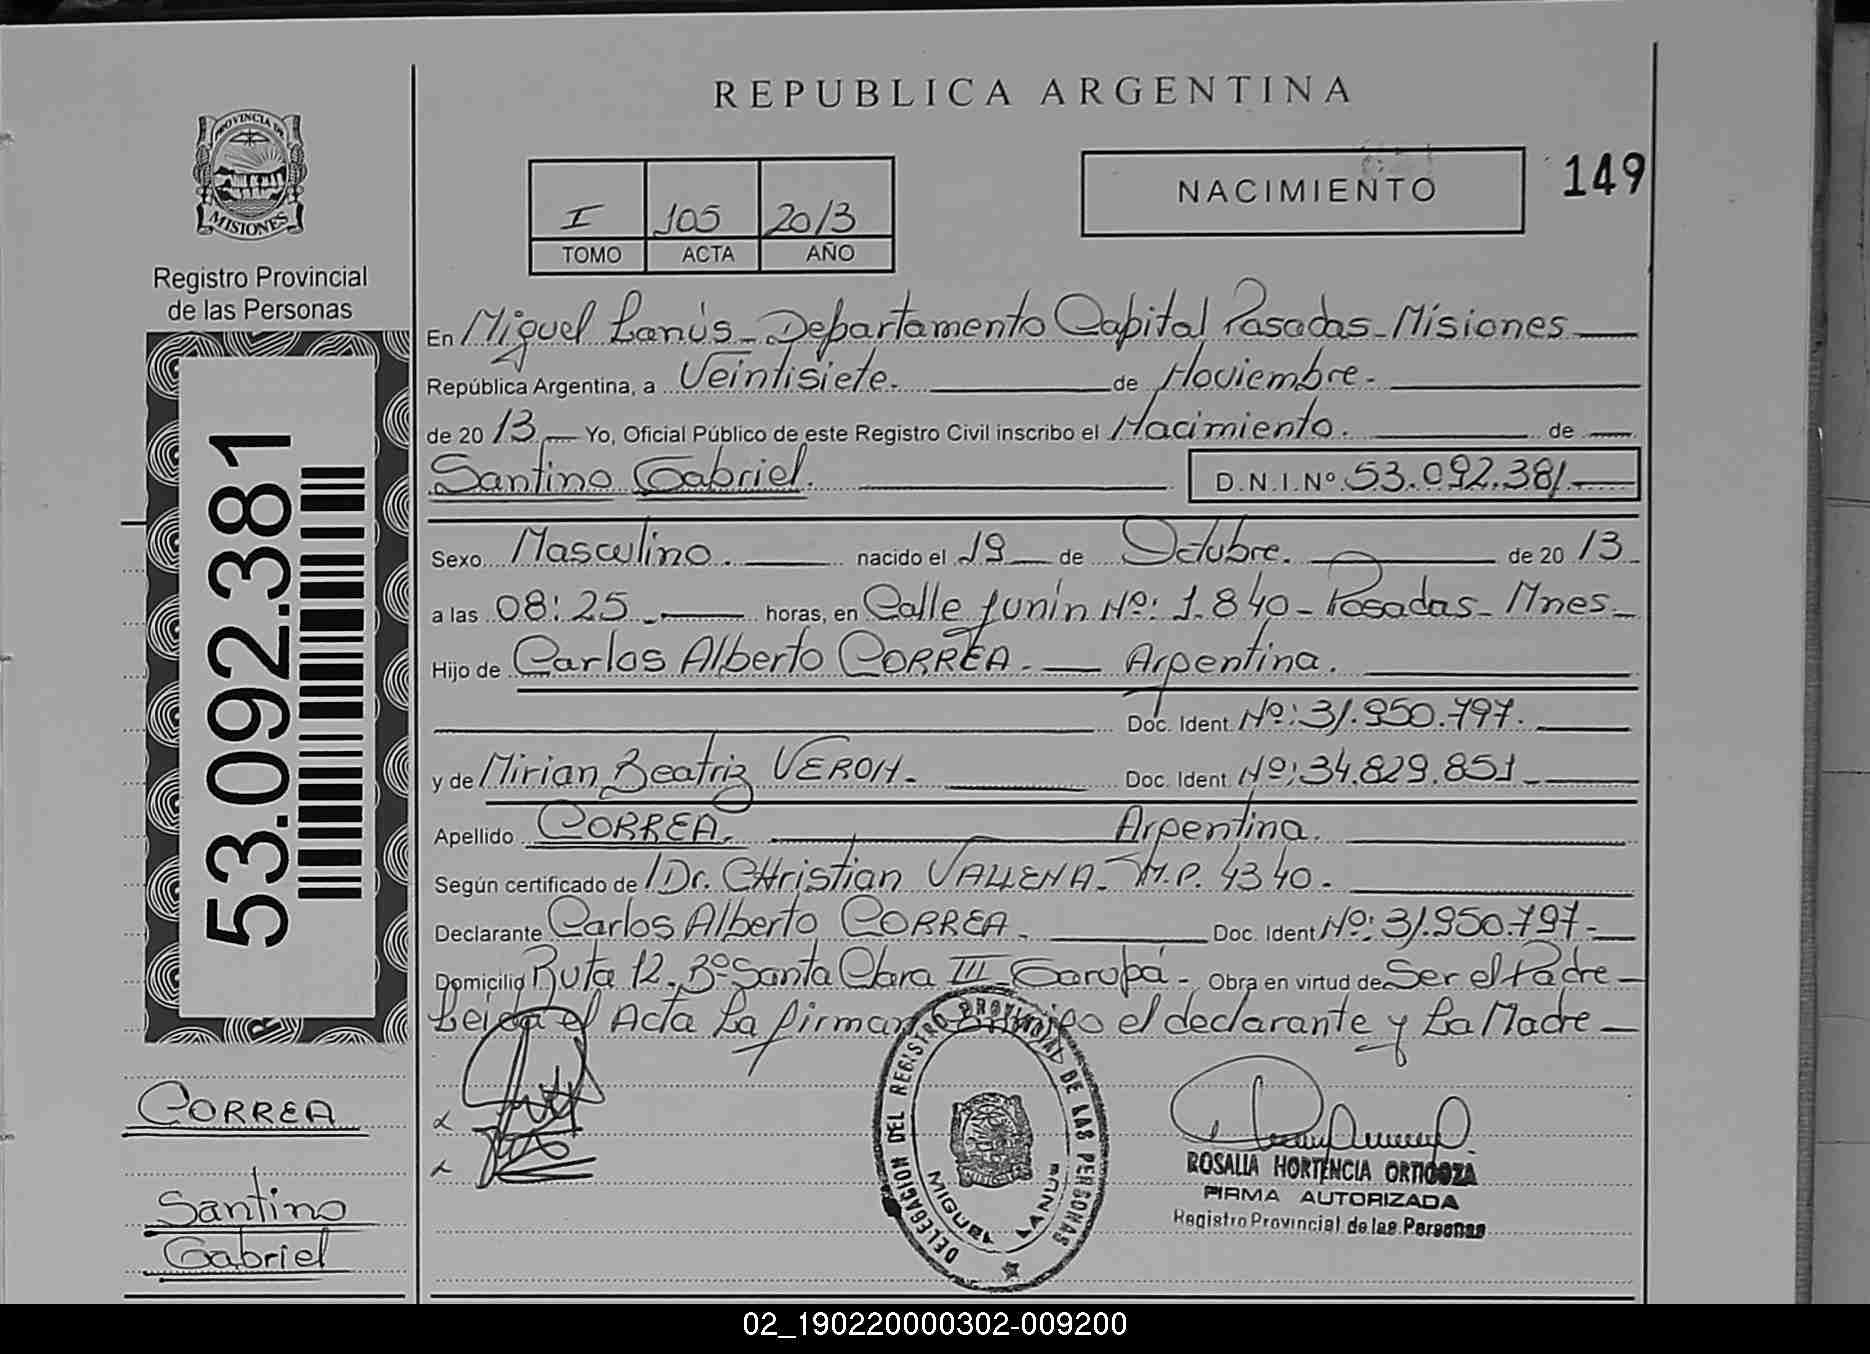 REPUBLICA ARGENTINA
PROVINCIA DE
MISIONES
Registro Provincial
de las Personas
53.092.381
I 105 2013
TOMO ACTA AÑO
NACIMIENTO
149
En Miguel Lanús - Departamento Capital Posadas - Misiones
República Argentina, a Veintisiete. de Noviembre.
de 20 13 Yo, Oficial Público de este Registro Civil inscribo el Nacimiento. de
Santino Gabriel. D.N.I.Nº 53.092.381
Sexo Masculino. nacido el 19 de Octubre. de 20 13
a las 08:25 horas, en Calle Junín Nº: 1.840 - Posadas - Mnes
Hijo de Carlos Alberto CORREA. Argentina.
Doc. Ident. Nº: 31.950.797.
y de Mirian Beatriz VERON. Doc. Ident. Nº: 34.829.851
Apellido CORREA. Argentina.
Según certificado de Dr. CHristian M.P. 4340.
Declarante Carlos Alberto CORREA. Doc. Ident Nº: 31.950.797
Domicilio Ruta 12. Bº Santa Clara III - Garupá - Obra en virtud de Ser el Padre
Leída el Acta La firman el declarante y La Madre
CORREA
Santino
Gabriel
DELEGACION DEL REGISTRO PROVINCIAL DE LAS PERSONAS
MIGUEL LANUS
ROSALIA HORTENCIA ORTIGOZA
FIRMA AUTORIZADA
Registro Provincial de las Personas
02_190220000302-009200